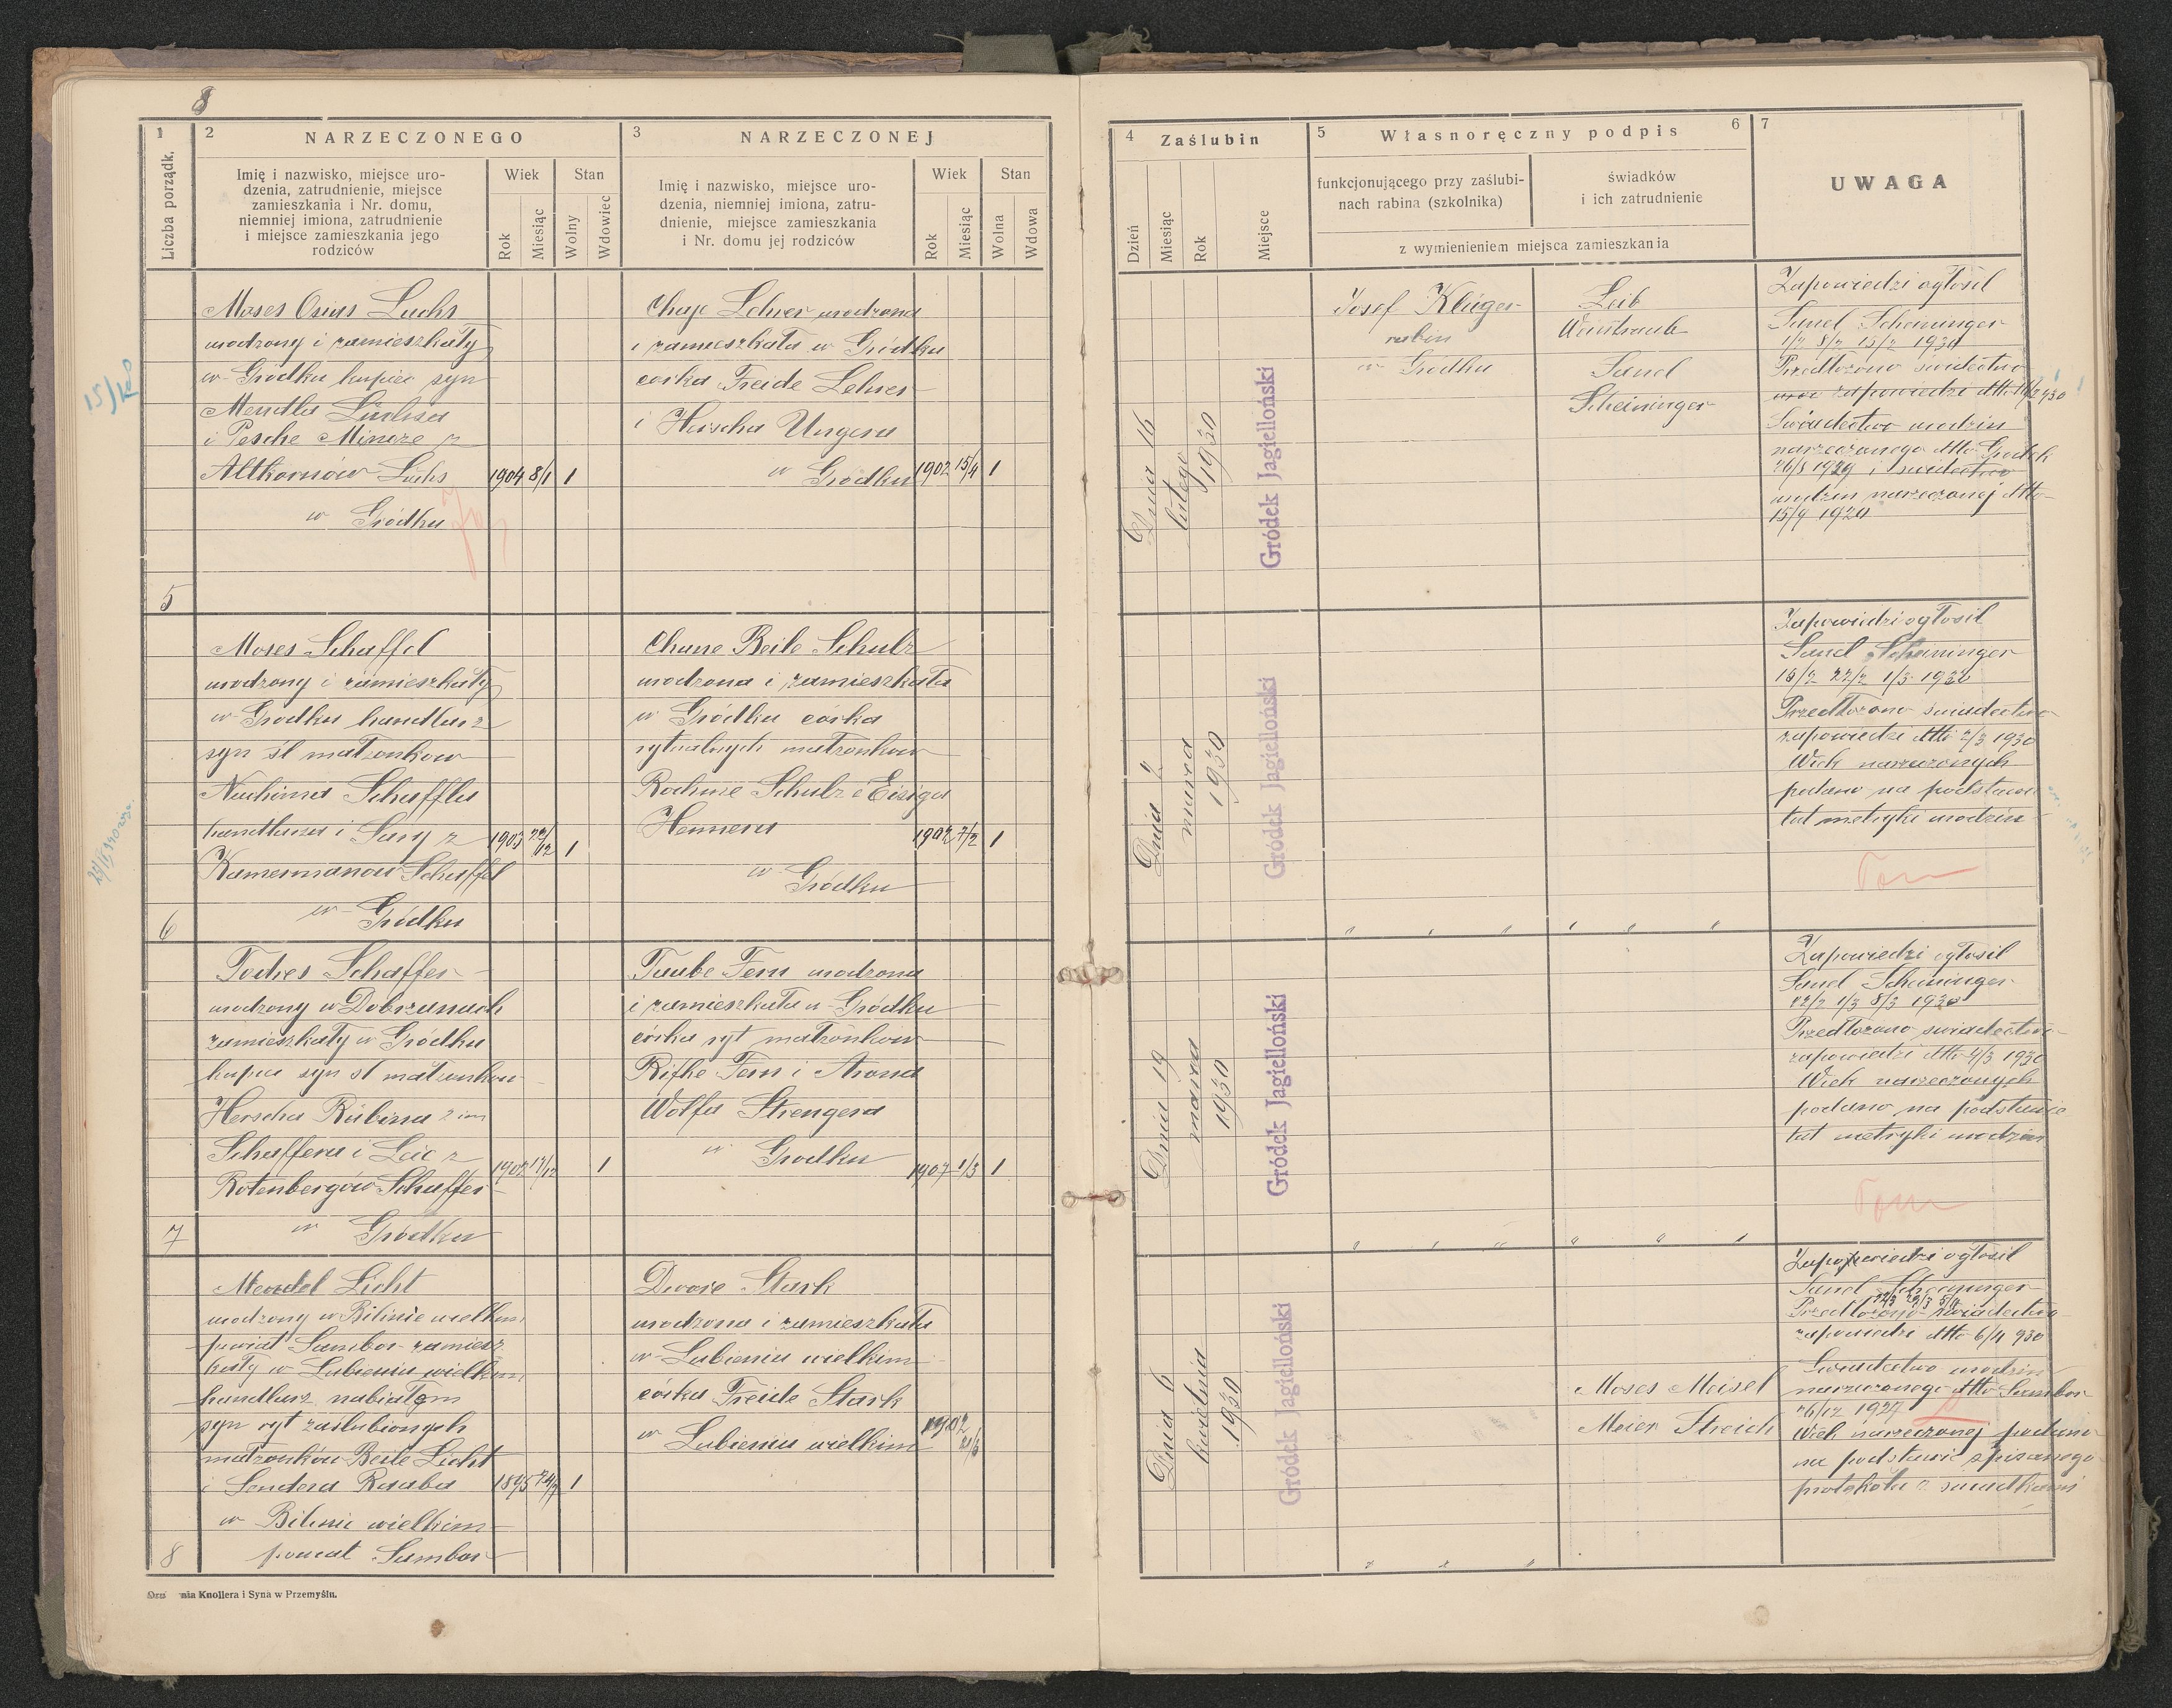 8
1
Liczba porządk.
2
NARZECZONEGO
Imię i nazwisko, miejsce uro-
dzenia, zatrudnienie, miejsce
zamieszkania i Nr. domu,
niemniej imiona, zatrudnienie
i miejsce zamieszkania jego
rodziców
Wiek
Rok
Miesiąc
Stan
Wolny
Wdowiec
3
NARZECZONEJ
Imię i nazwisko, miejsce uro-
dzenia, niemniej imiona, zatru-
dnienie, miejsce zamieszkania
i Nr. domu jej rodziców
Wiek
Rok
Miesiąc
Stan
Wolna
Wdowa
4
Zaślubin
Dzień
Miesiąc
Rok
Miejsce
5
Własnoręczny podpis
6
funkcjonującego przy zaślubi-
nach rabina (szkolnika)
świadków
i ich zatrudnienie
z wymienieniem miejsca zamieszkania
7
UWAGA
5
Moses Osias Luchs
urodzony i zamieszkały
w Gródku kupiec syn
Mendla Luchsa
i Pesche Mincze z
Altkornów Luchs
w Gródku
1904 8/1 1
Chaje Lehrer urodzona
i zamieszkała w Gródku
córka Freide Lehrer
i Herscha Ungera
w Gródku
1902 15/4 1
Dnia 16
lutego
1930
Gródek Jagielloński
Josef Klüger
rabin
w Gródku
Leib
Weintraub
Sand
Scheininger
Zapowiedzi ogłosił
Sand Scheininger
1/2 8/2 15/2 1930
Przedłożono świadectwo
zapowiedzi dtto 16/2 930
Świadectwo urodzin
narzeczonego dtto Gródek
26/8 1929 i świadectwo
urodzin narzeczonej dtto
6
Moses Schaffel
urodzony i zamieszkały
w Gródku handlarz
syn śl małżonków
Nachima Schaffla
handlarza i Sary z
Kamermanów Schaffel
w Gródku
1903 22/12 1
Chane Beile Schulz
urodzona i zamieszkała
w Gródku córka
rytualnych małżonków
Rochme Schulz i Eisiga
Hennera
w Gródku
1902 7/2 1
Dnia 2
marca
1930
Gródek Jagielloński
" " " " " "
Zapowiedzi ogłosił
Sand Scheininger
15/2 22/2 1/3 1930
Przedłożono świadectwo
zapowiedzi dtto 2/3 1930
Wiek narzeczonych
podano na podstawie
tut metryki urodzin
7
Todres Schaffer
urodzony w Dobrzanach
zamieszkały w Gródku
kupiec syn śl małżonków
Herscha Rubina 2 im
Schaffera i Leie z
Rotenbergów Schaffer
w Gródku
1902 17/12 1
Taube Fern urodzona
i zamieszkała w Gródku
córka ryt małżonków
Rifke Fern i Arona
Wolfa Strengera
w Gródku
1907 1/3 1
Dnia 19
marca
1930
Gródek Jagielloński
" " " " " "
Zapowiedzi ogłosił
Sand Scheininger
22/2 1/3 8/3 1930
Przedłożono świadectwo
zapowiedzi dtto 9/3 1930
Wiek narzeczonych
podano na podstawie
tut metryki urodzin
8
Mendel Licht
urodzony w Bilinie wielkim
powiat Sambor zamiesz
kały w Lubieniu wielkim
handlarz nabiałem
syn ryt zaślubionych
małżonków Beile Licht
i Sendera Raaba
w Bilinie wielkim
powiat Sambor
1895 24/7 1
Dwore Stark
urodzona i zamieszkała
w Lubieniu wielkim
córka Freide Stark
w Lubieniu wielkim
1902 21/3
Dnia 6
kwietnia
1930
Gródek Jagielloński
" " "
Moses Meisel
Meier Streich
Zapowiedzi ogłosił
Sand Scheininger
22/3 29/3 5/4
Przedłożono świadectwo
zapowiedzi dtto 6/4 930
Świadectwo urodzin
narzeczonego dtto Sambor
26/12 1927
Wiek narzeczonej podano
na podstawie spisanego
protokołu z świadkami
Knollera i Syna w Przemyślu.